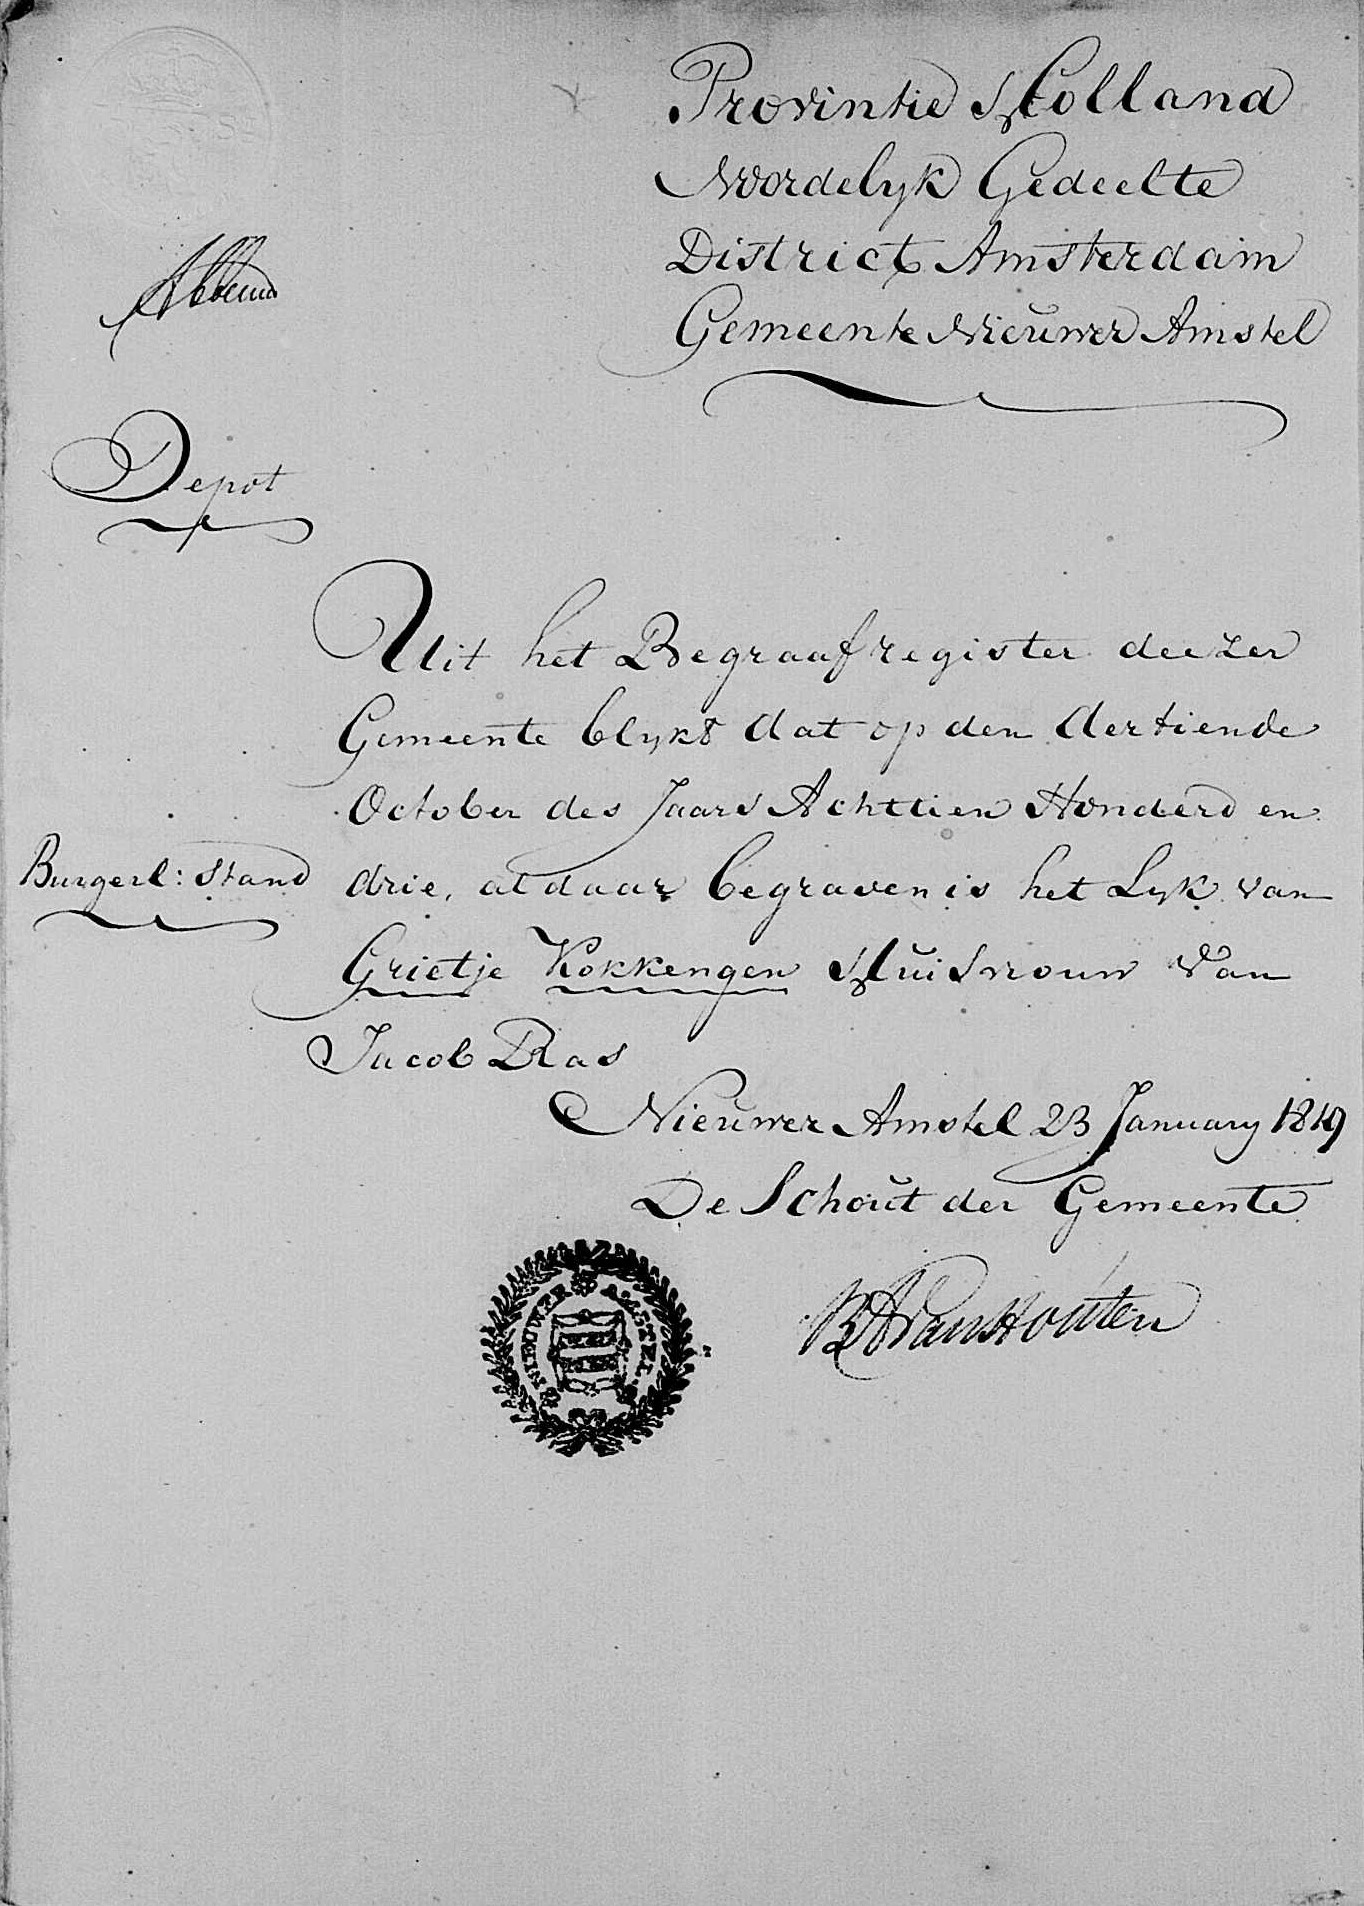 Provintie Holland
Noordelyk Gedeelte
District Amsterdam
Gemeente Nieuwer Amstel
Depot
Uit het Begraafregister deezer
Gemeente blykt dat op den dertiende
October des Jaars Achttien Honderd en
Burgerl: Stand
drie, aldaar begraven is het Lyk van
Grietje Kokkengen Huisvrouw van
Jacob Ras
Nieuwer Amstel 23 January 1819
De Schout der Gemeente
NIEUWER AMSTEL